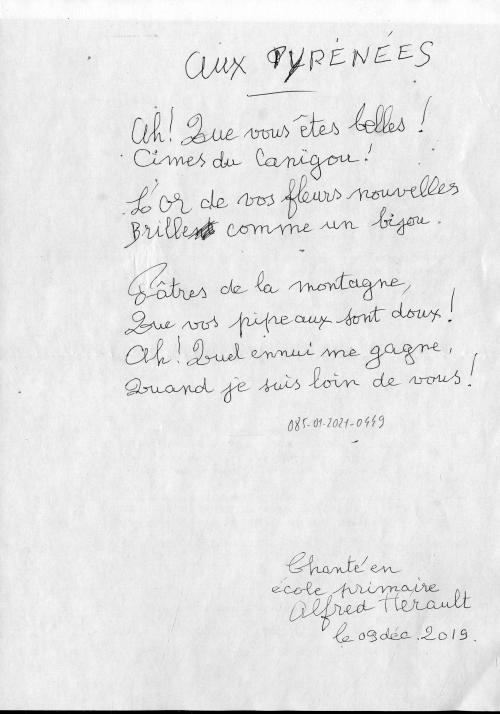 Aux PYRÉNÉES
Ah! Que vous êtes belles!
Cimes du Canigou!
L'or de vos fleurs nouvelles
Brille comme un bijou.
Pâtres de la montagne,
Que vos pipeaux sont doux!
Ah! Quel ennui me gagne,
Quand je suis loin de vous!
085-01-2021-0449
Chanté en
école primaire
Alfred Hérault
le 09 déc. 2019.